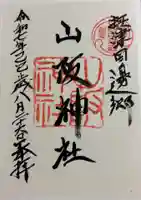 摂津国田邊郷
山阪神社
令和七年乙巳歳八月二十六日奉拝